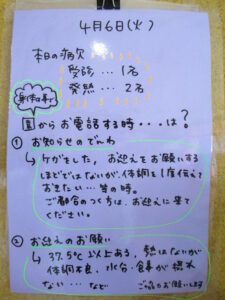 4月6日(火)
本日の病欠
受診…1名
発熱…2名
園からお電話する時・・・は?
① お知らせのでんわ
→ ケガをした、お迎えをお願いする
ほどではないが、体調を1度伝えて
おきたい…等の時。
ご都合のつく方は、お迎えに来て
ください。
② お迎えのお願い
→ 37.5℃以上ある、熱はないが
体調不良、水分・食事が摂れ
ない…など
ご協力お願いします